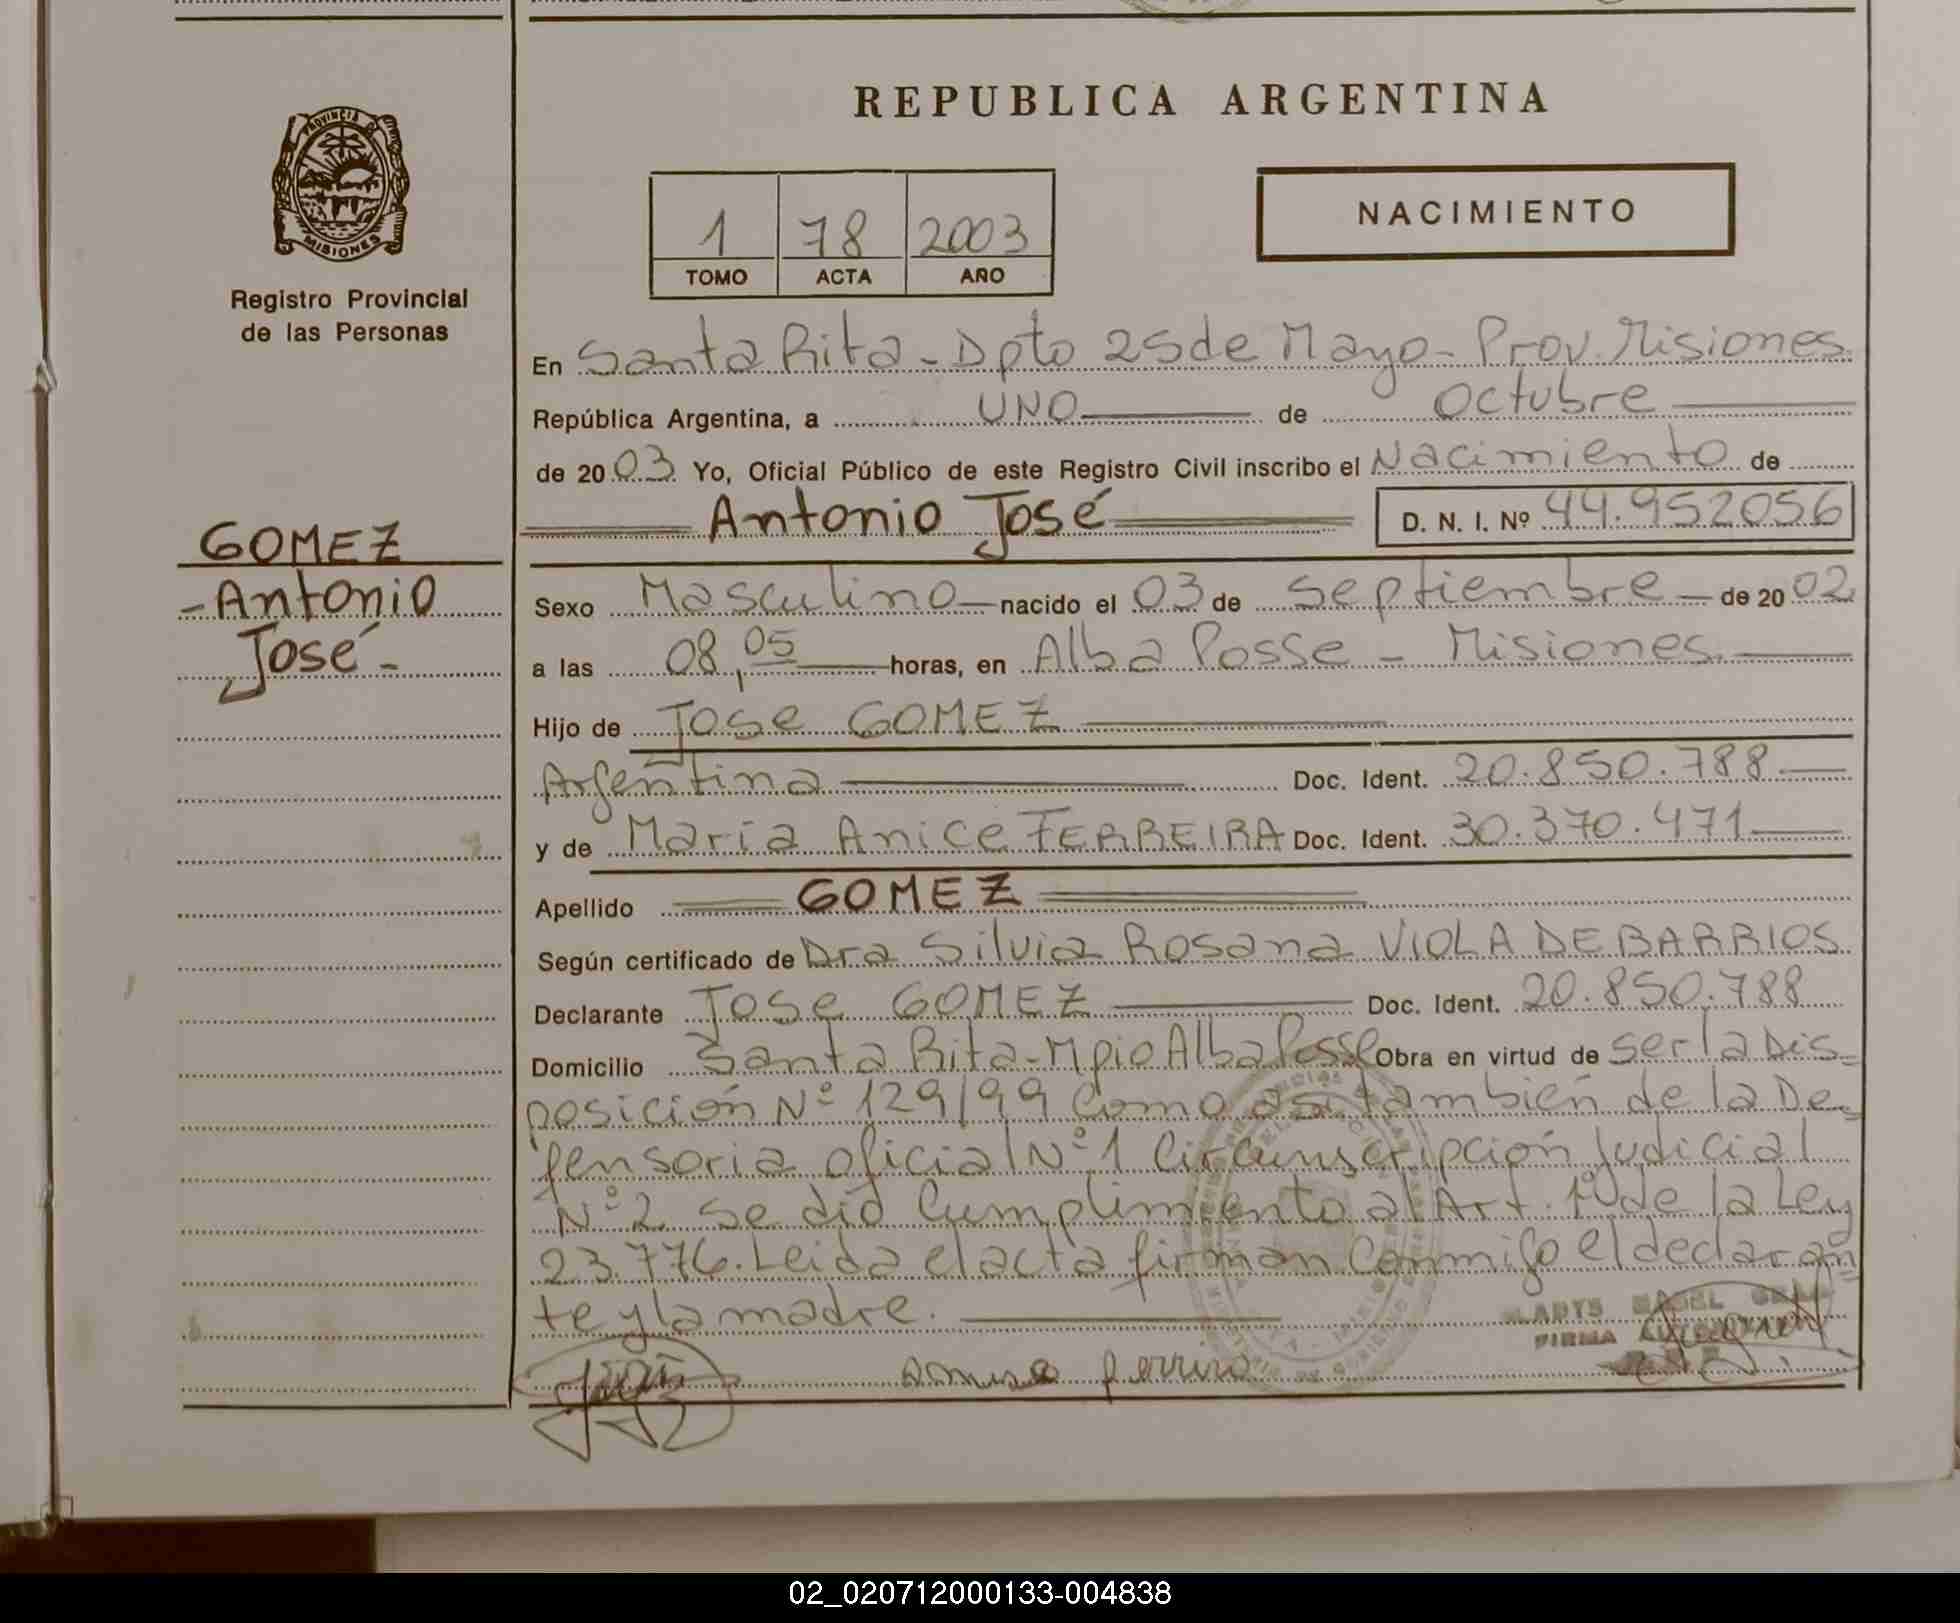 REPUBLICA ARGENTINA
PROVINCIA D
MISIONES
Registro Provincial
de las Personas
1 78 2003
TOMO ACTA AÑO
NACIMIENTO
En Santa Rita - Dpto 25 de Mayo - Prov. Misiones
República Argentina, a UNO de Octubre
de 2003 Yo, Oficial Público de este Registro Civil inscribo el Nacimiento de
Antonio José D. N. I. Nº 44.952056
GOMEZ
- Antonio
José -
Sexo Masculino nacido el 03 de Septiembre de 2002
a las 08,05 horas, en Alba Posse - Misiones
Hijo de Jose GOMEZ
Argentina Doc. Ident. 20.850.788
y de Maria Anice FERREIRA Doc. Ident. 30.370.471
Apellido GOMEZ
Según certificado de Dra Silvia Rosana VIOLA DE BARRIOS
Declarante Jose GOMEZ Doc. Ident. 20.850.788
Domicilio Santa Rita - Mpio Alba Posse Obra en virtud de ser la Dis-
posición Nº 129/99 Como asi también de la De-
fensoria oficial Nº 1 Circunscripción Judicial
Nº 2 se dió Cumplimiento al Art. 1º de la Ley
23.776. Leida el acta firman Conmigo el declaran
te y la madre.
FIRMA
02_020712000133-004838